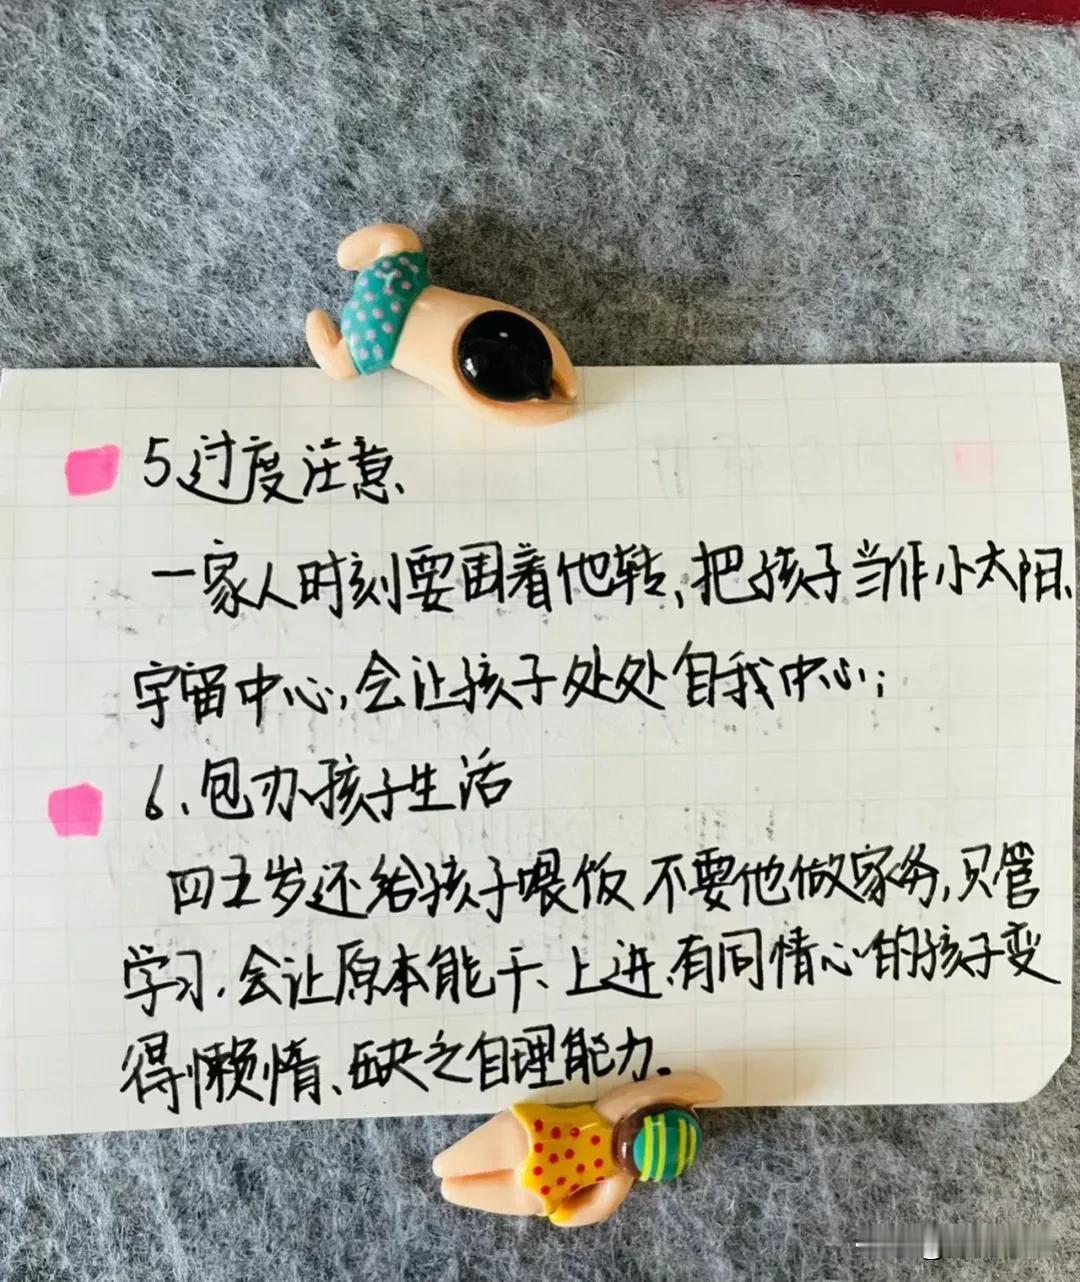 5、过度注意、
一家人时刻要围着他转、把孩子当作小太阳、
宇宙中心,会让孩子处处自我中心;
6、包办孩子生活
四五岁还给孩子喂饭 不要他做家务,只管
学习,会让原本能干、上进、有同情心的孩子变
得懒惰、缺乏自理能力。